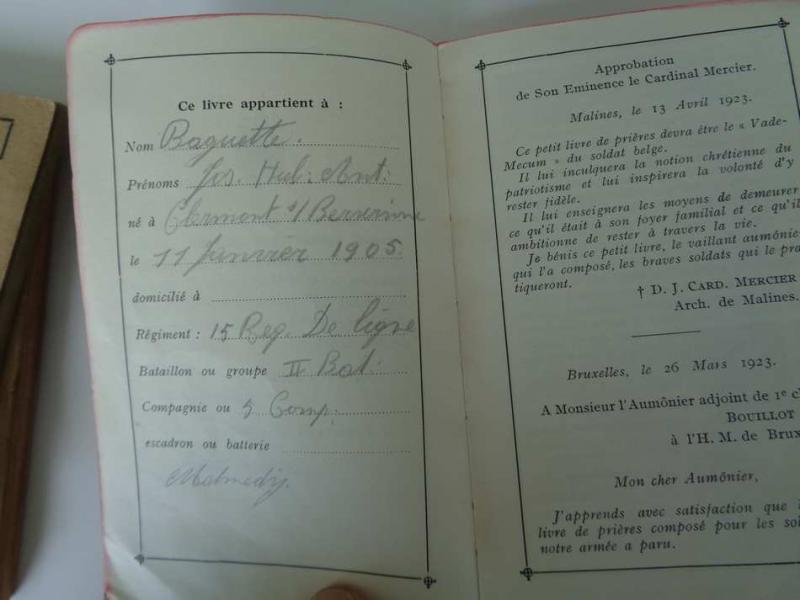 Ce livre appartient à :
Nom Baguette.
Prénoms Jos. Hub. Ant.
né à Clermont s/ Berwinne
le 11 Janvier 1905.
domicilié à
Régiment : 15 Reg. De ligne
Bataillon ou groupe II Bat.
Compagnie ou 5 Comp.
escadron ou batterie
Malmedy.
Approbation
de Son Eminence le Cardinal Mercier.
Malines, le 13 Avril 1923.
Ce petit livre de prières devra être le « Vade-
Mecum » du soldat belge.
Il lui inculquera la notion chrétienne du
patriotisme et lui inspirera la volonté d'y
rester fidèle.
Il lui enseignera les moyens de demeurer
ce qu'il était à son foyer familial et ce qu'il
ambitionne de rester à travers la vie.
Je bénis ce petit livre, le vaillant aumônie
qui l'a composé, les braves soldats qui le pra
tiqueront.
† D. J. CARD. MERCIER
Arch. de Malines.
Bruxelles, le 26 Mars 1923.
A Monsieur l'Aumônier adjoint de 1e c
BOUILLOT
à l'H. M. de Brux
Mon cher Aumônier,
J'apprends avec satisfaction que
livre de prières composé pour les so
notre armée a paru.